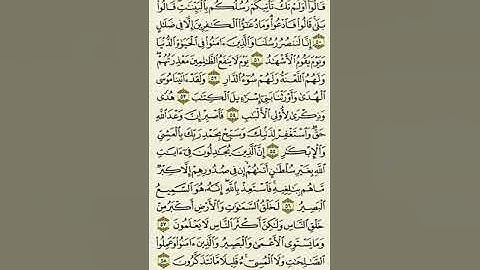 قَالُوٓا۟ أَوَلَمْ تَكُ تَأْتِيكُمْ رُسُلُكُم بِٱلْبَيِّنَٰتِ قَالُوا۟
بَلَىٰ قَالُوا۟ فَٱدْعُوا۟ وَمَا دُعَٰٓؤُا۟ ٱلْكَٰفِرِينَ إِلَّا فِى ضَلَٰلٍ
٥٠ إِنَّا لَنَنصُرُ رُسُلَنَا وَٱلَّذِينَ ءَامَنُوا۟ فِى ٱلْحَيَوٰةِ ٱلدُّنْيَا
وَيَوْمَ يَقُومُ ٱلْأَشْهَٰدُ ٥١ يَوْمَ لَا يَنفَعُ ٱلظَّٰلِمِينَ مَعْذِرَتُهُمْ
وَلَهُمُ ٱللَّعْنَةُ وَلَهُمْ سُوٓءُ ٱلدَّارِ ٥٢ وَلَقَدْ ءَاتَيْنَا مُوسَى
ٱلْهُدَىٰ وَأَوْرَثْنَا بَنِىٓ إِسْرَٰٓءِيلَ ٱلْكِتَٰبَ ٥٣ هُدًى
وَذِكْرَىٰ لِأُو۟لِى ٱلْأَلْبَٰبِ ٥٤ فَٱصْبِرْ إِنَّ وَعْدَ ٱللَّهِ
حَقٌّ وَٱسْتَغْفِرْ لِذَنۢبِكَ وَسَبِّحْ بِحَمْدِ رَبِّكَ بِٱلْعَشِىِّ
وَٱلْإِبْكَٰرِ ٥٥ إِنَّ ٱلَّذِينَ يُجَٰدِلُونَ فِىٓ ءَايَٰتِ
ٱللَّهِ بِغَيْرِ سُلْطَٰنٍ أَتَىٰهُمْ إِن فِى صُدُورِهِمْ إِلَّا كِبْرٌ
مَّا هُم بِبَٰلِغِيهِ فَٱسْتَعِذْ بِٱللَّهِ إِنَّهُۥ هُوَ ٱلسَّمِيعُ
ٱلْبَصِيرُ ٥٦ لَخَلْقُ ٱلسَّمَٰوَٰتِ وَٱلْأَرْضِ أَكْبَرُ مِنْ
خَلْقِ ٱلنَّاسِ وَلَٰكِنَّ أَكْثَرَ ٱلنَّاسِ لَا يَعْلَمُونَ ٥٧
وَمَا يَسْتَوِى ٱلْأَعْمَىٰ وَٱلْبَصِيرُ وَٱلَّذِينَ ءَامَنُوا۟ وَعَمِلُوا۟
ٱلصَّٰلِحَٰتِ وَلَا ٱلْمُسِىٓءُ قَلِيلًا مَّا تَتَذَكَّرُونَ ٥٨